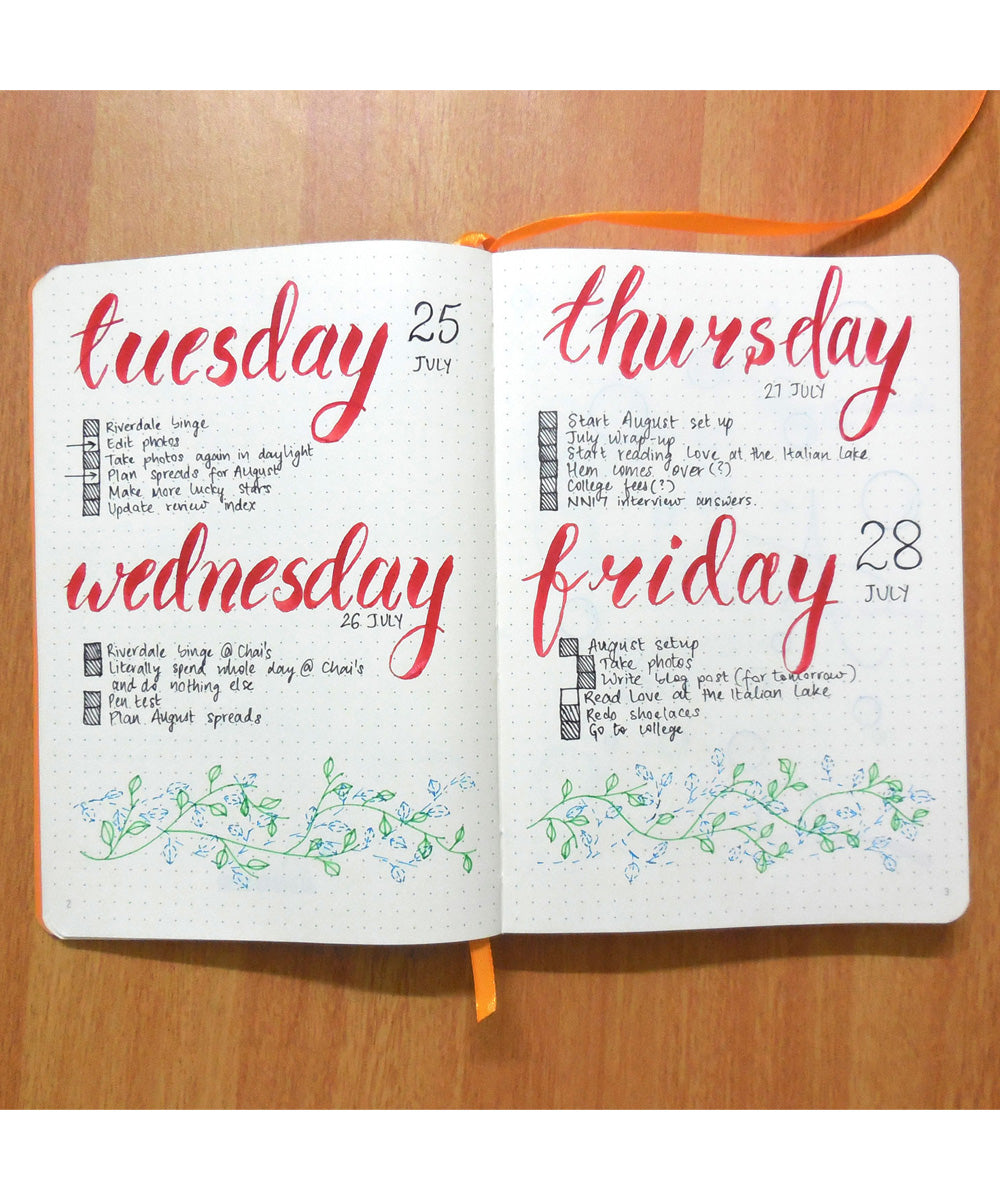 tuesday
25
JULY
Riverdale binge
Edit photos
Take photos again in daylight
Plan spreads for August
Make more lucky stars
Update review index
wednesday
26 JULY
Riverdale binge @ Chai's
Literally spend whole day @ Chai's
and do nothing else
Pen test
Plan August spreads
2
thursday
27 JULY
Start August set up
July wrap-up
Start reading Love at the Italian Lake
Mem comes over(?)
College fees(?)
NN17 interview answers.
friday
28
JULY
August setup
Take photos
Write blog post (for tomorrow)
Read Love at the Italian Lake
Redo shoelaces
Go to college
3